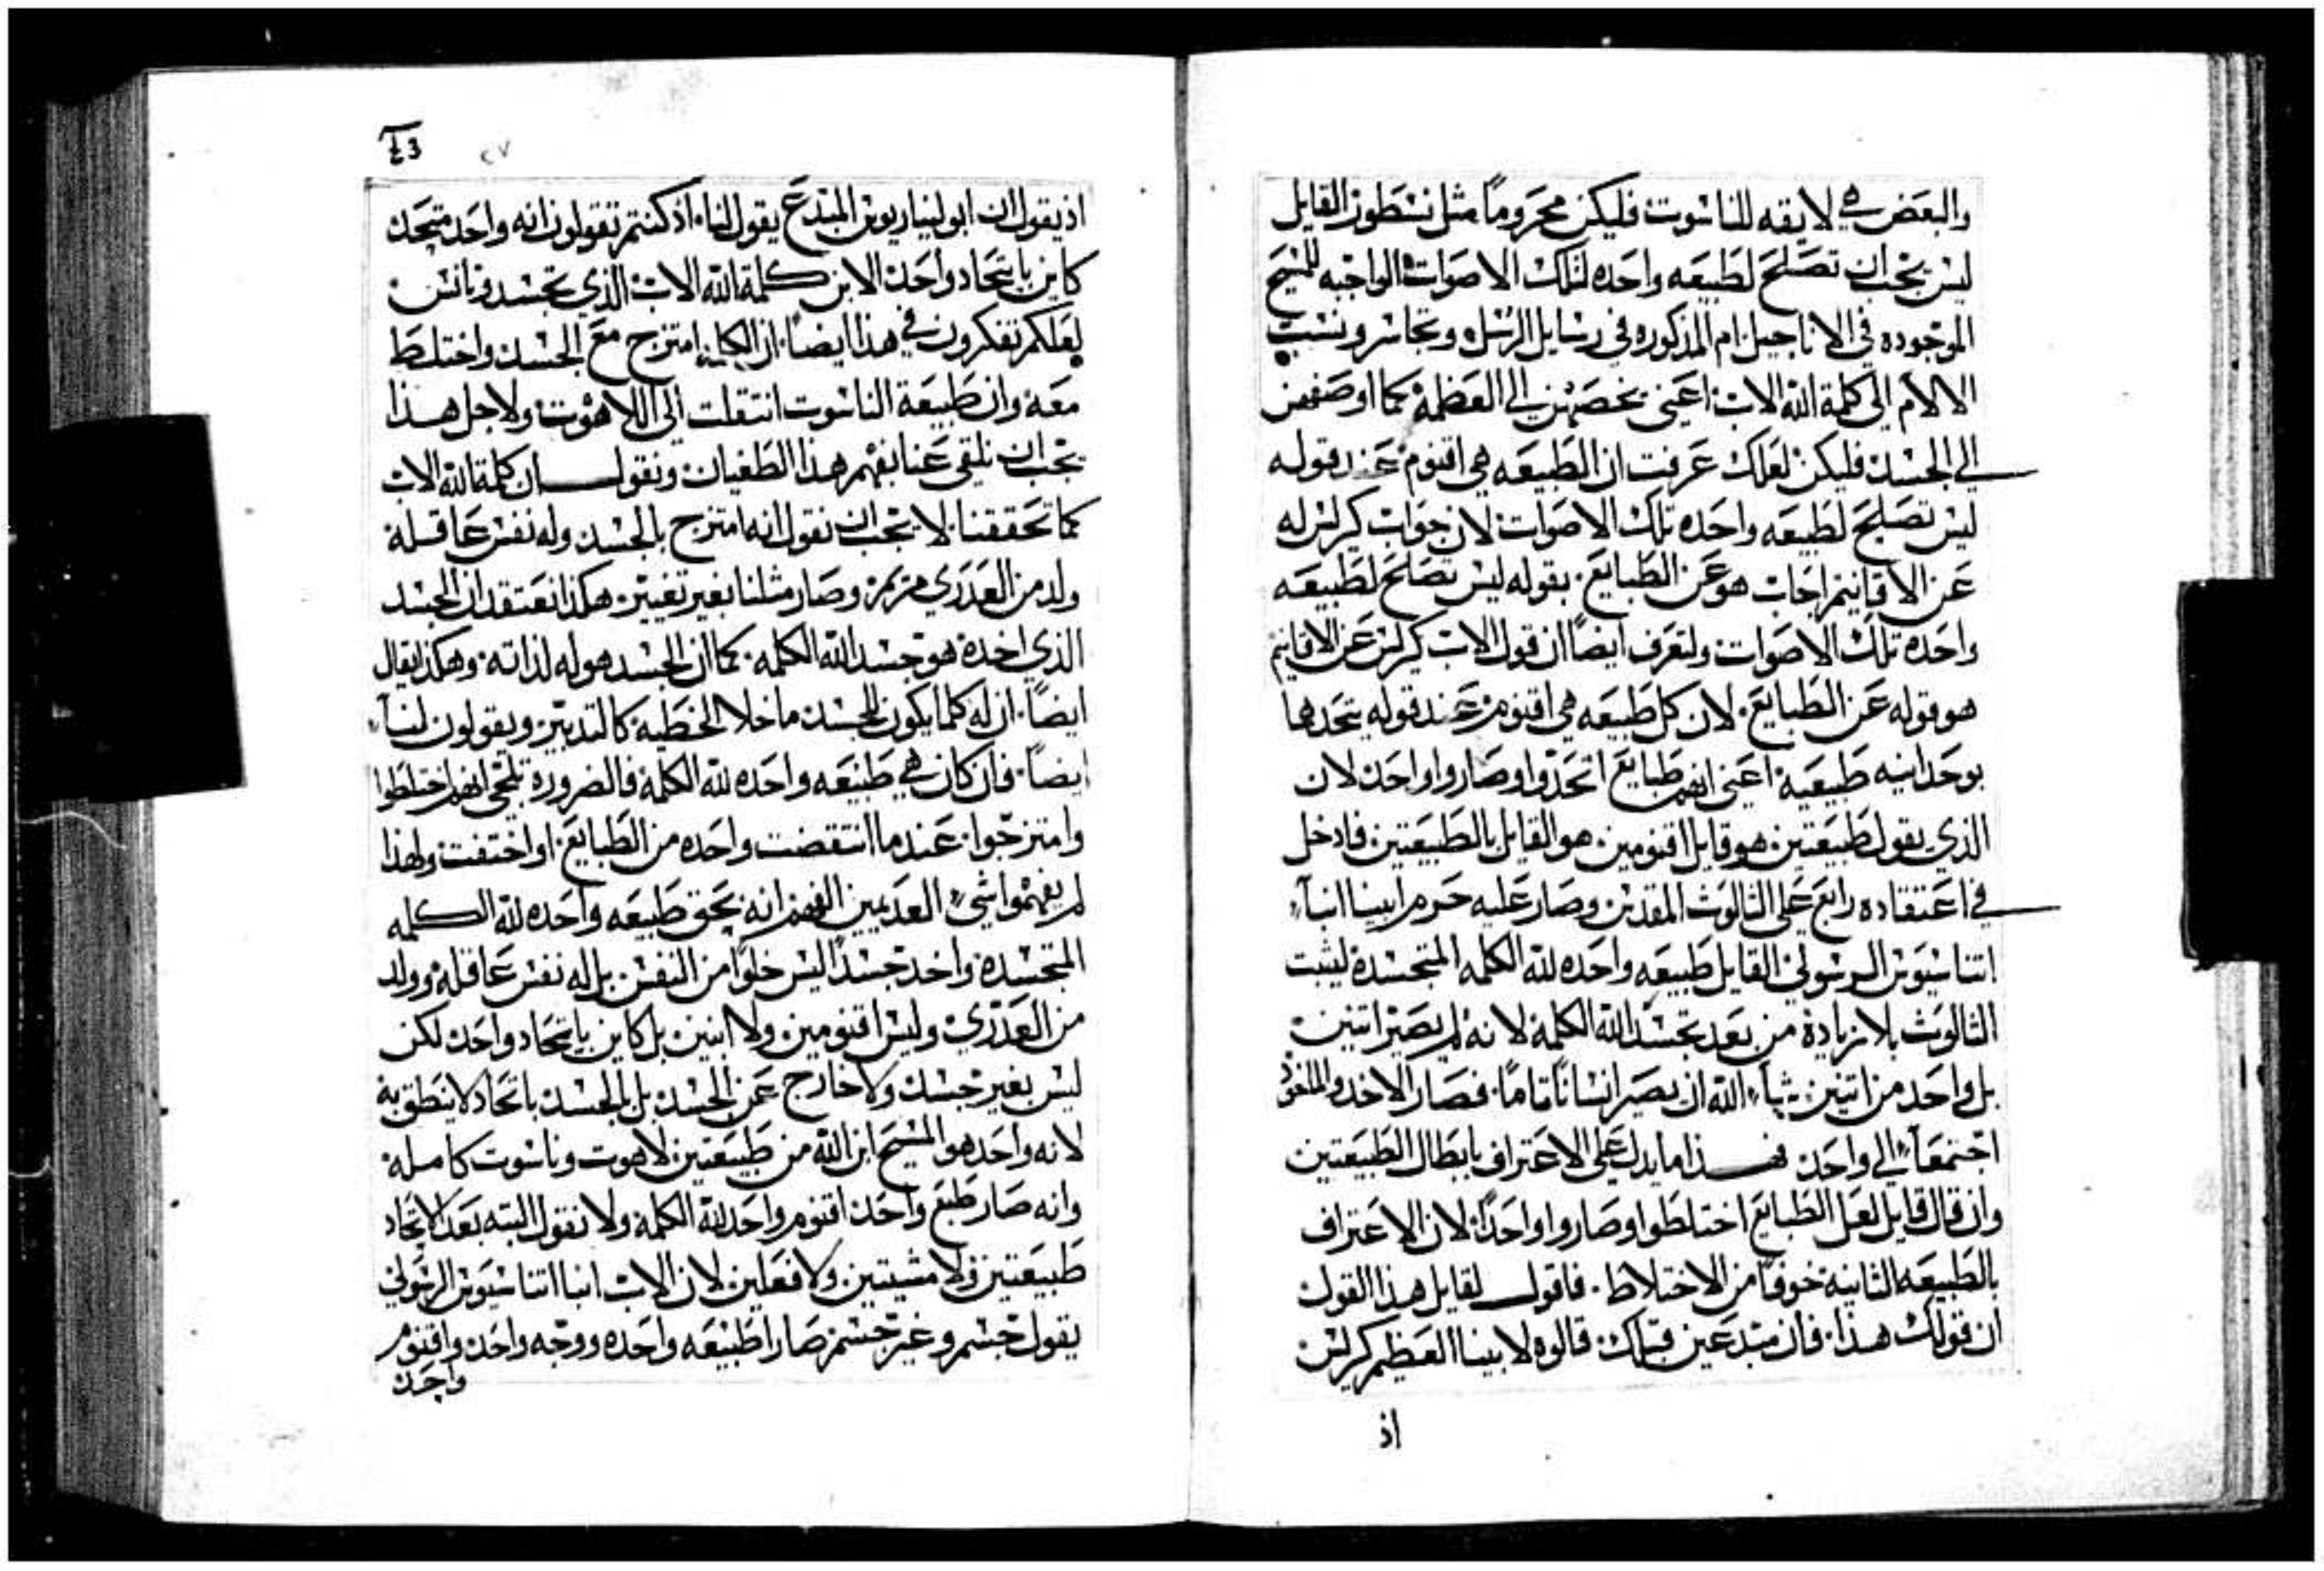 والبعض هي لايقه للناسوت فليكن محروماً مثل نسطور القايل
ليس يجب ان تصلح لطبيعه واحده لتلك الاصوات الواجبه للمسيح
الموجوده في الاناجيل ام المذكوره في رسايل الرسل وتجاسر ونسب
الالام الى كلمة الله الاب اعني يخصهن الى العظمة كما اوصفهن
الى الجسد فليكن لعلك عرفت ان الطبيعه هي اقنوم عند قوله
ليس تصلح لطبيعه واحده تلك الاصوات لان جواب كرلس له
عن الاقانيم اجاب هو عن الطبايع بقوله ليس تصلح لطبيعه
واحده تلك الاصوات ولتعرف ايضاً ان قول الاب كرلس عن الاقانيم
هو قوله عن الطبايع لان كل طبيعه هي اقنوم عند قوله يتحدها
بوحدانيه طبيعية اعني انهم طبايع اتحدوا وصاروا واحد لان
الذي يقول طبيعتين هو قايل اقنومين هو القايل بالطبيعتين فادخل
في اعتقاده رابع على الثالوث المقدس وصار عليه حرم ابينا انبا
اتناسيوس الرسولي القايل طبيعه واحده لله الكلمه المتجسدة ليثبت
الثالوث بلا زيادة من بعد تجسد الله الكلمة لانه لم يصير اتنين
بل واحد من اتنين شاء الله ان يصير انساناً تاماً فصار الاخد والماخود
اجتمعاً الى واحد فهذا ما يدل على الاعتراف بابطال الطبيعتين
وان قال قايل لعل الطبايع اختلطوا وصاروا واحداً لان الاعتراف
بالطبيعه الثانية خوفاً من الاختلاط فاقول لقايل هذا القول
ان قولك هذا فان مبتدعين قبلك قالوه لابينا العظيم كرلس
اذ
٤٣ ٢٧
اذ يقول ان ابوليناريوس المبتدع يقول لنا اذ كنتم تقولون انه واحد متحد
كاين باتحاد واحد الابن كلمة الله الاب الذي تجسد وتانس
لعلكم تفكرون في هذا ايضاً ان الكلمة امتزج مع الجسد واختلط
معه وان طبيعة الناسوت انتقلت الى اللاهوت ولاجل هذا
يجب ان نلقي عنا بفهم هذا الطغيان ونقول ان كلمة الله الاب
كما تحققنا لا يجب ان نقول انه امتزج بالجسد وله نفس عاقلة
ولد من العدري مريم وصار مثلنا بغير تغيير هكذا نعتقد ان الجسد
الذي اخدة هو جسد الله الكلمه كما ان الجسد هو له لذاته وهكذا يقال
ايضاً ان له كلما يكون للجسد ما خلا الخطية كالتدبير ويقولون لنا
ايضاً فان كان هي طبيعه واحده لله الكلمة فالضرورة تلتجي انهم اختلطوا
وامتزجوا عندما انتقضت واحده من الطبايع او اختفت ولهذا
لم يفهموا شي العديمين الفهم انه بحق طبيعه واحده لله الكلمه
المتجسدة واخد جسداً ليس خلواً من النفس بل له نفس عاقله وولد
من العدري وليس اقنومين ولا ابنين بل كاين باتحاد واحد لكن
ليس بغير جسد ولا خارج عن الجسد بل بالجسد باتحاد لا ينطق به
لانه واحد هو المسيح ابن الله من طبيعتين لاهوت وناسوت كامله
وانه صار طبع واحد اقنوم واحد لله الكلمة ولا نقول البته بعد الاتحاد
طبيعتين ولا مشيتين ولا فعلين لان الاب انبا اتناسيوس الرسولي
يقول جسم وغير جسم صارا طبيعه واحده ووجه واحد واقنوم
واحد